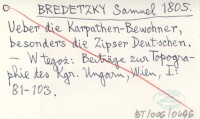 BREDETZKY Samuel 1805.
Ueber die Karpathen-Bewohner,
besonders die Zipser Deutschen.
— W tegoż: Beiträge zur Topogra-
phie des Kgr. Ungarn, Wien, I:
81-103.
BT/006/0496